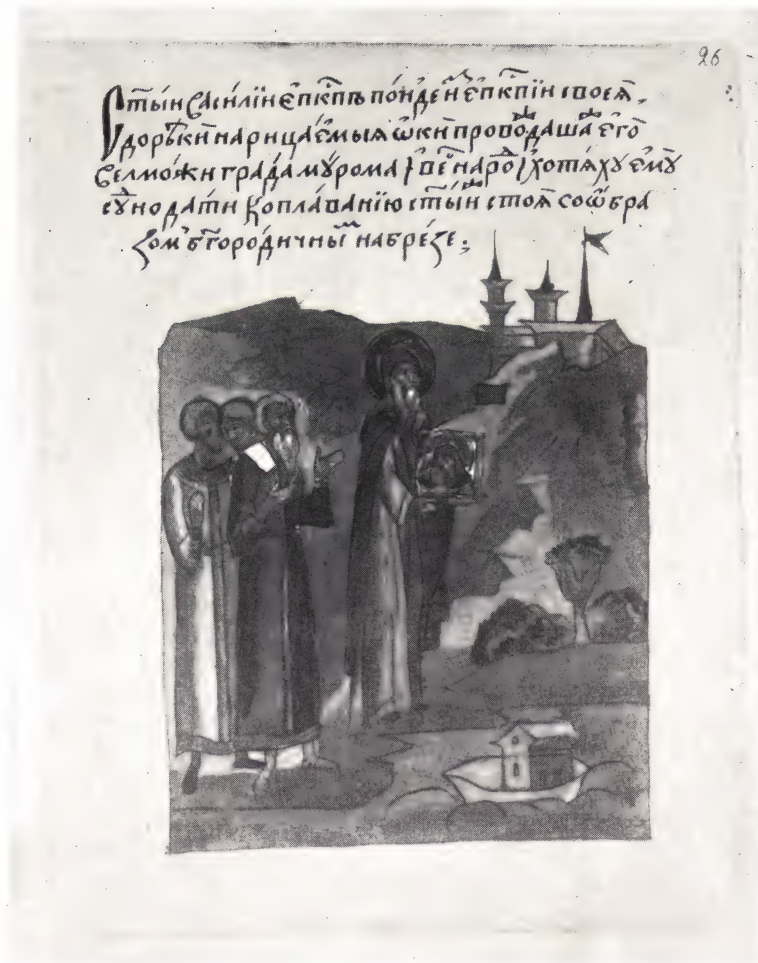 26
Ст҃ы́й Васи́лїй є҆пⷭ҇кпъ по́иде и҆ є҆пⷭ҇кпїи своеѧ̀,
до рѣки̑ нарица́ємыѧ ѡ҆кѝ провожда́ша є҆го̀
велмо́жи гра́да мꙋ́рома и҆ ве́сь наро́дъ и҆ хотѧ́хꙋ є҆мꙋ̀
сꙋ́дно да́ти ко пла́ванїю ст҃ы́й стоѧ̀ со ѡ҆́бра
зомъ бг҃оро́дичнымъ на бре́зе;